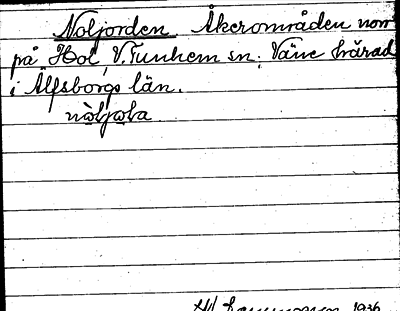 Noljorden Åkerområden norr
på Hol, V. Tunhem sn; Väne härad
i Älfsborgs län.
nòljola
1936